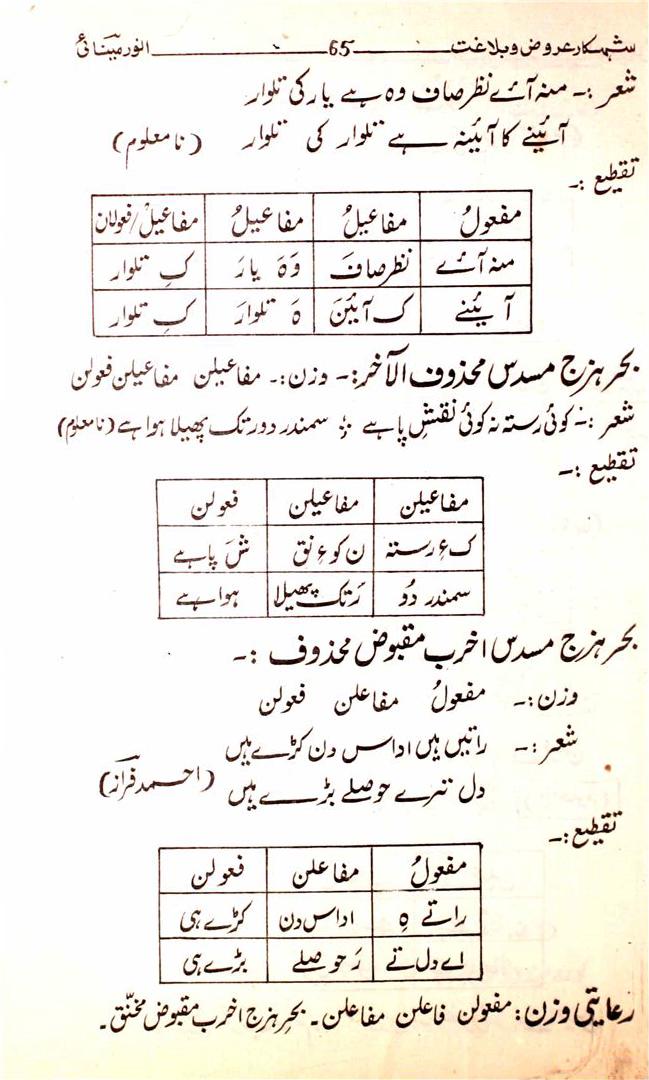 شہکار عروض و بلاغت 65 انور مینائی
شعر :۔ منہ آئے نظر صاف وہ ہے یار کی تلوار
آئینے کا آئینہ ہے تلوار کی تلوار (نامعلوم)
تقطیع :۔
مفعولُ مفاعیلُ مفاعیلُ مفاعیلْ/فعولان
منہ آئے نظر صافَ وَہَ یارَ کِ تلوار
آیئنے ک آیئنَ ہَ تلوارَ کِ تلوار
بحر ہزج مسدس محذوف الآخر :۔ وزن :۔ مفاعیلن مفاعیلن فعولن
شعر :۔ کوئی رستہ نہ کوئی نقشِ پا ہے ؛ سمندر دور تک پھیلا ہوا ہے (نامعلوم)
تقطیع :۔
مفاعیلن مفاعیلن فعولن
کءِ رستہ ن کوءِ نق شَ پا ہے
سمندر دُو رَ تک پھیلا ہوا ہے
بحر ہزج مسدس اخرب مقبوض محذوف :۔
وزن :۔ مفعولُ مفاعلن فعولن
شعر :۔ راتیں ہیں اداس دن کڑے ہیں
دل تیرے حوصلے بڑے ہیں (احمد فراز)
تقطیع :۔
مفعولُ مفاعلن فعولن
راتے ہِ اداس دن کڑے ہی
اے دل تے رَ حوصلے بڑے ہی
رعایتی وزن : مفعولن فاعلن مفاعلن۔ بحرِ ہزج اخرب مقبوض مخنّق۔